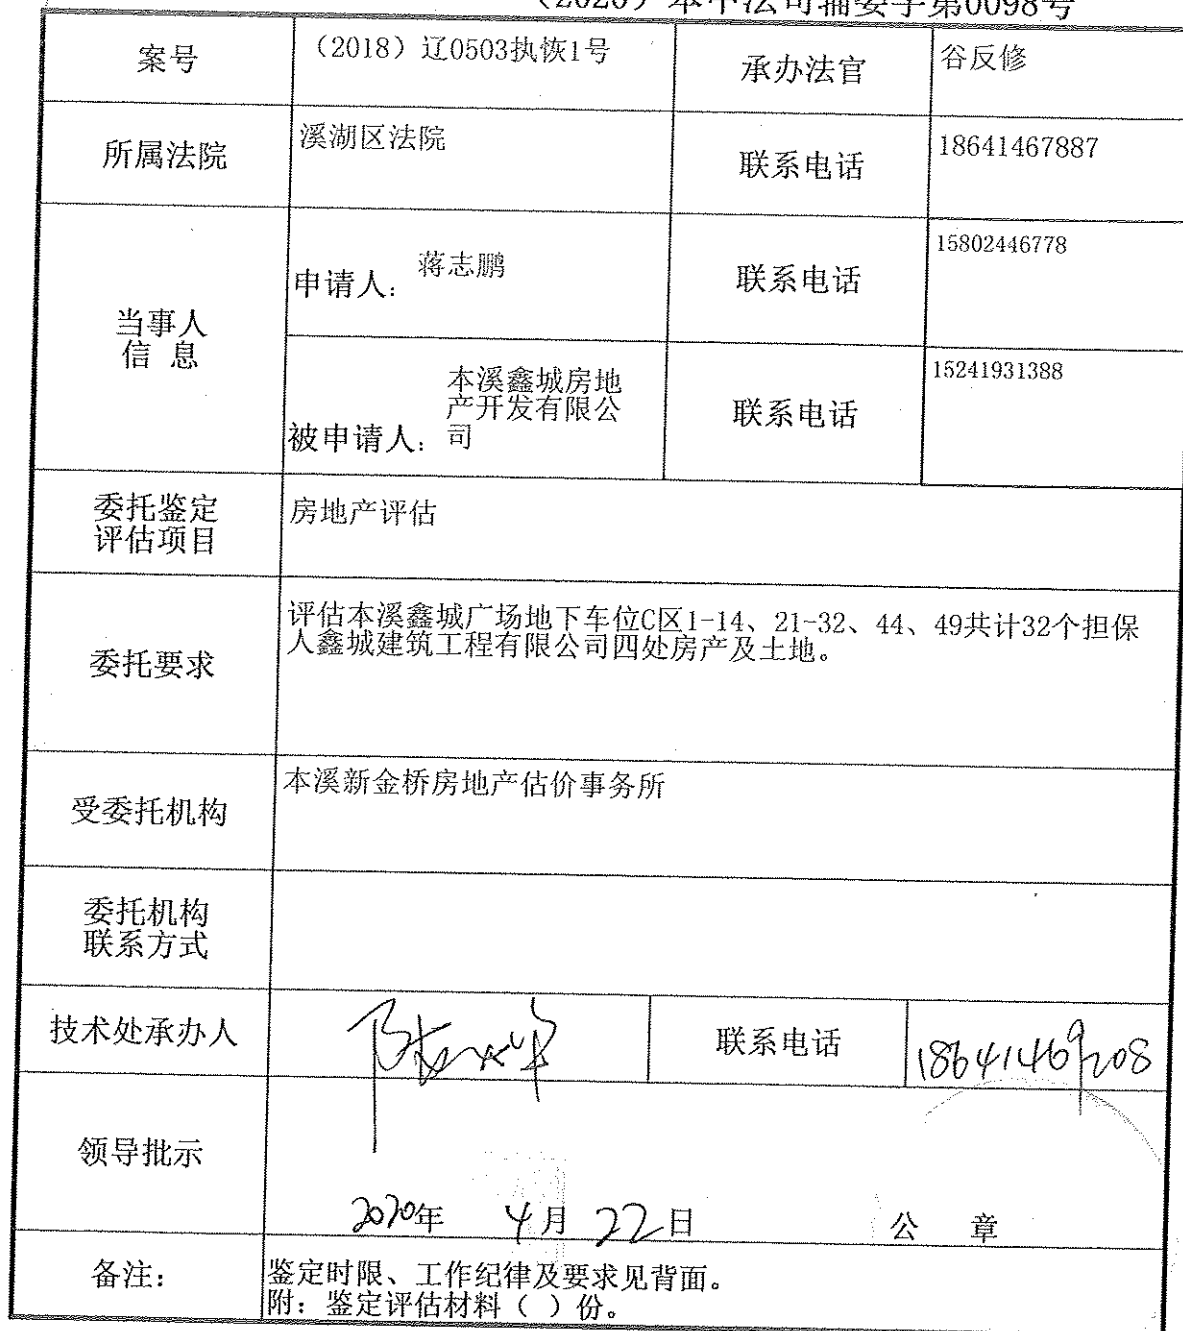 （2020）本中法司辅委字第0098号
案号 （2018）辽0503执恢1号 承办法官 谷反修
所属法院 溪湖区法院 联系电话 18641467887
当事人
信 息
申请人： 蒋志鹏 联系电话 15802446778
本溪鑫城房地
产开发有限公
被申请人： 司 联系电话 15241931388
委托鉴定
评估项目
房地产评估
委托要求
评估本溪鑫城广场地下车位C区1-14、21-32、44、49共计32个担保
人鑫城建筑工程有限公司四处房产及土地。
受委托机构 本溪新金桥房地产估价事务所
委托机构
联系方式
技术处承办人 联系电话 18641469208
领导批示
2020年 4月 22日 公 章
备注：
鉴定时限、工作纪律及要求见背面。
附：鉴定评估材料（ ）份。